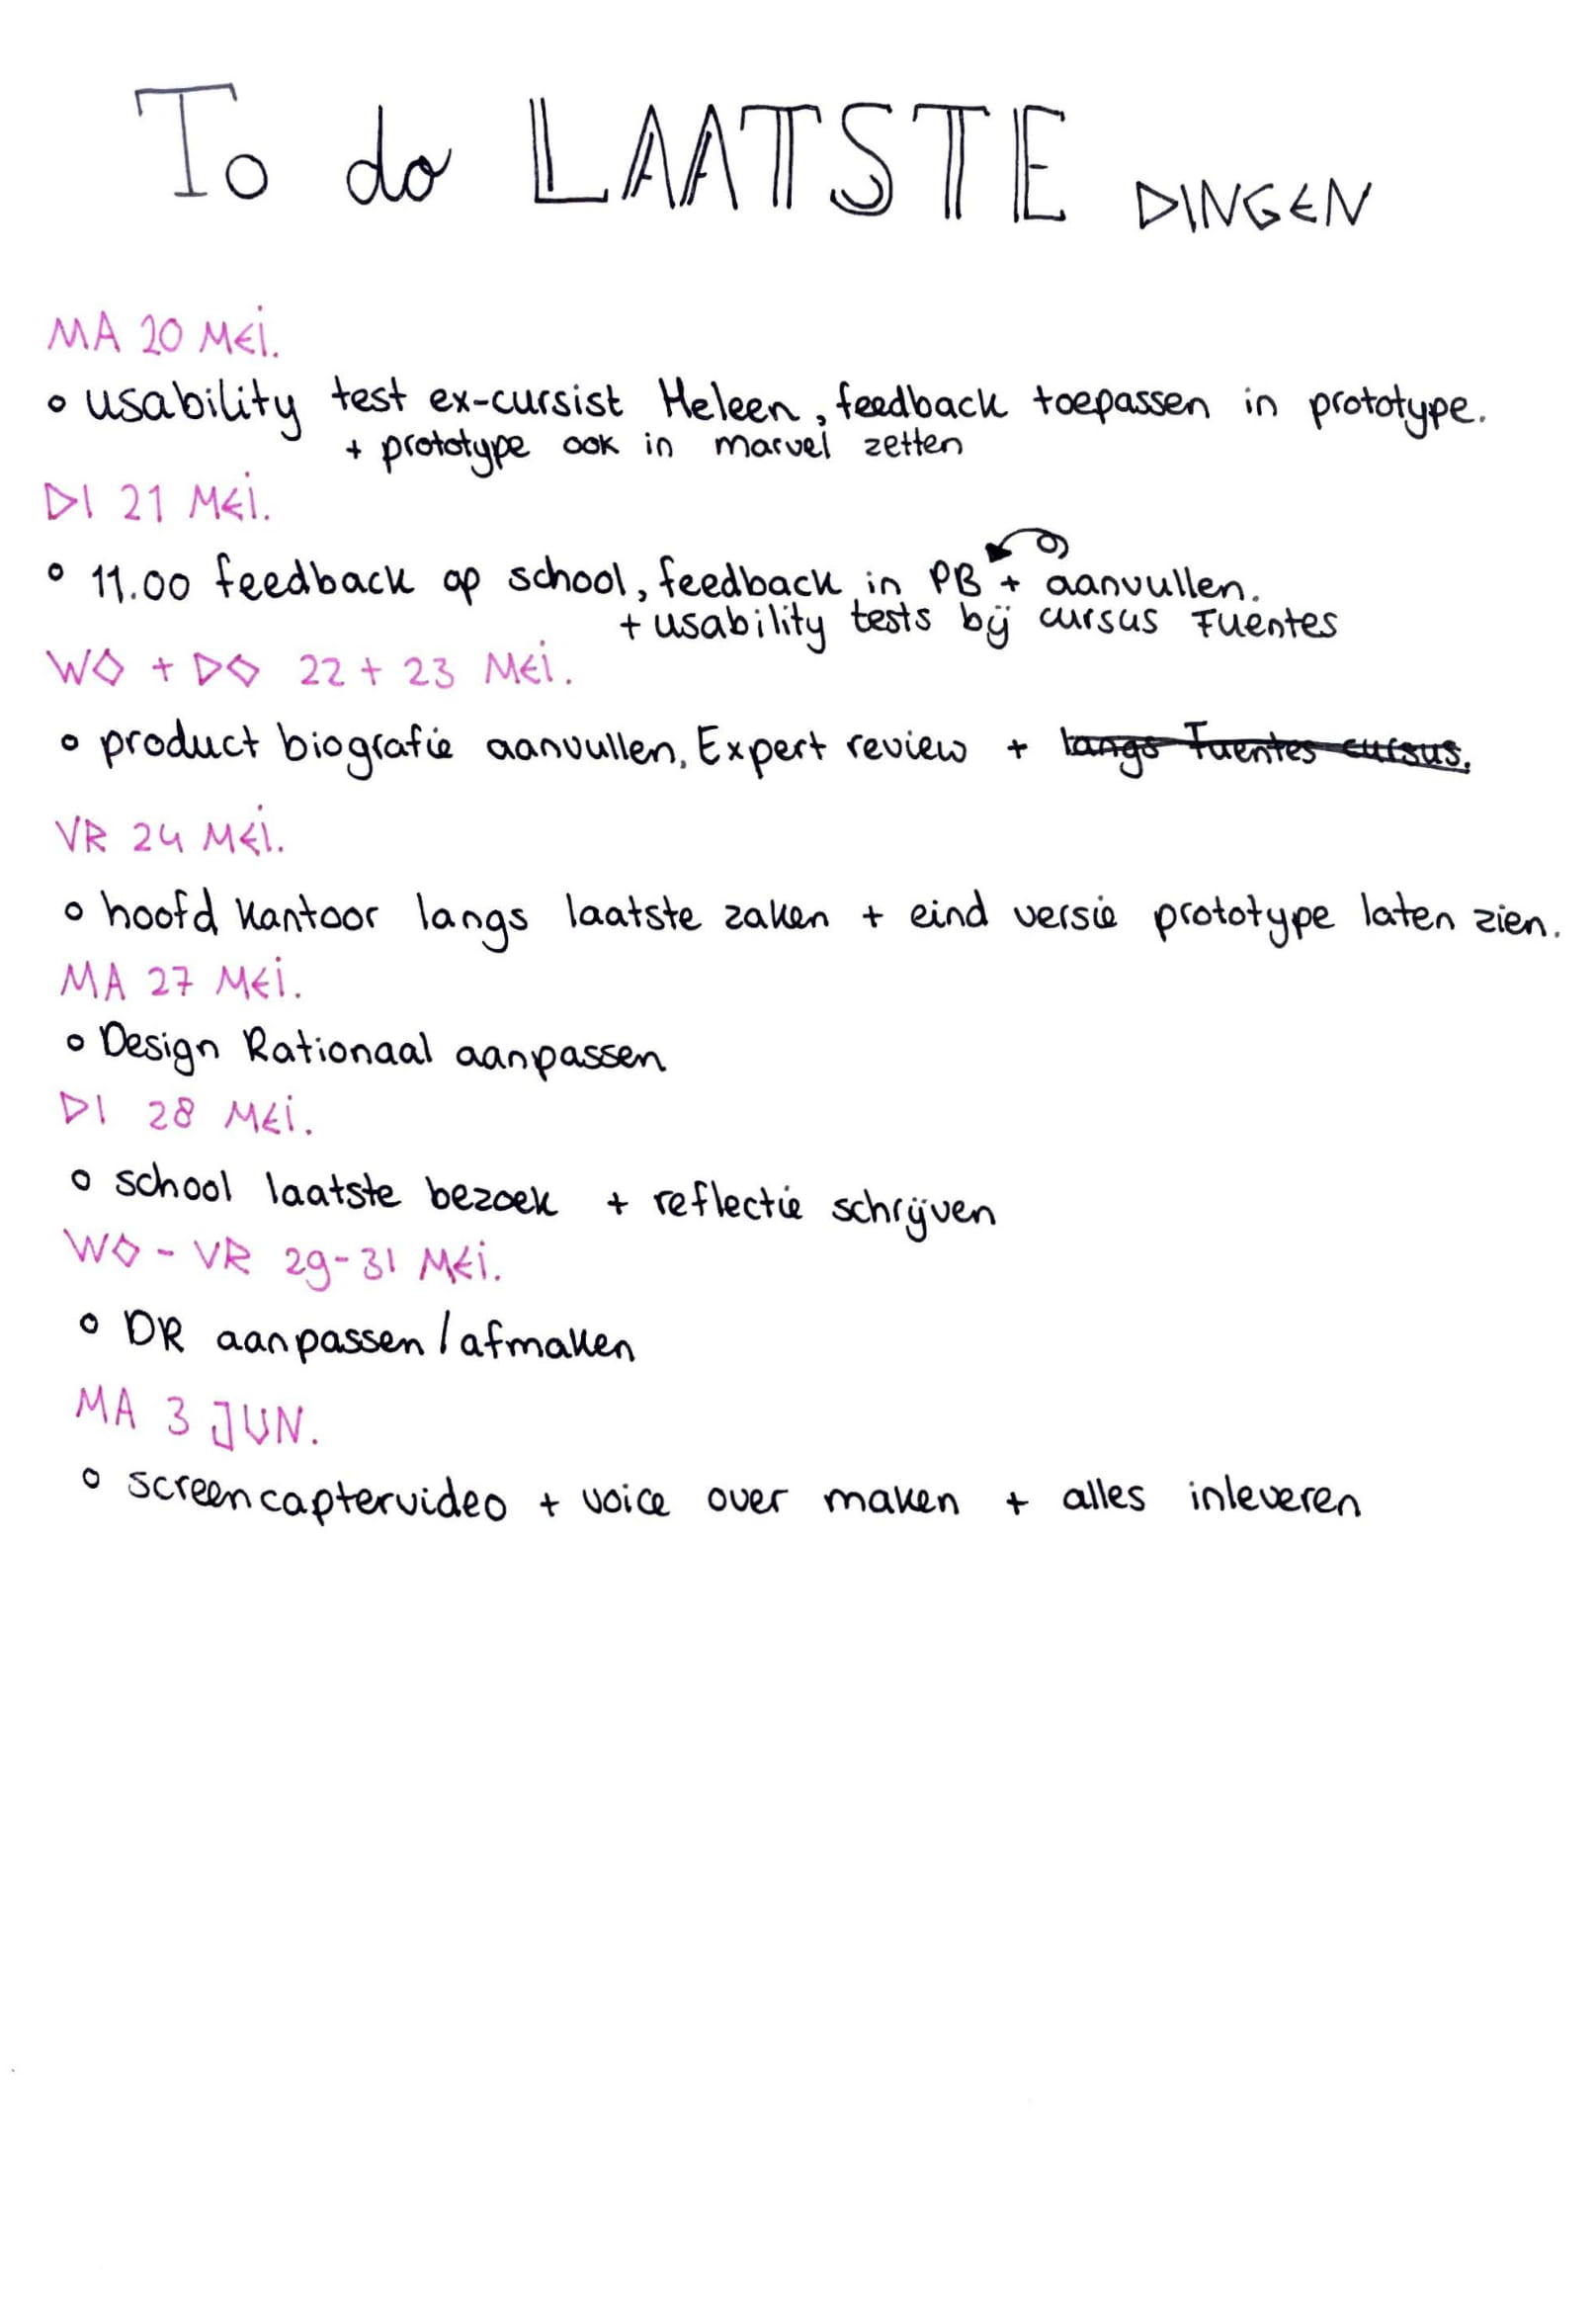 To do LAATSTE DINGEN
MA 20 MEi.
usability test ex-cursist Heleen, feedback toepassen in prototype.
+ prototype ook in marvel zetten
DI 21 MEi.
11.00 feedback op school, feedback in PB + aanvullen.
+ usability tests bij cursus Fuentes
WO + DO 22 + 23 MEi.
product biografie aanvullen, Expert review + langs Fuentes cursus.
VR 24 MEi.
hoofd kantoor langs laatste zaken + eind versie prototype laten zien.
MA 27 MEi.
Design Rationaal aanpassen
DI 28 MEi.
school laatste bezoek + reflectie schrijven
WO - VR 29-31 MEi.
DR aanpassen / afmaken
MA 3 JUN.
screencaptervideo + voice over maken + alles inleveren